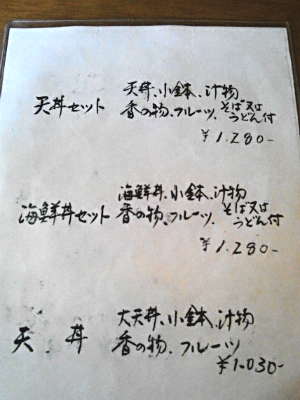 天丼セット 天丼、小鉢、汁物
香の物、フルーツ、そば又はうどん付
¥1.280-
海鮮丼セット 海鮮丼、小鉢、汁物
香の物、フルーツ、そば又はうどん付
¥1.280-
天丼 大天丼、小鉢、汁物
香の物、フルーツ
¥1.030-